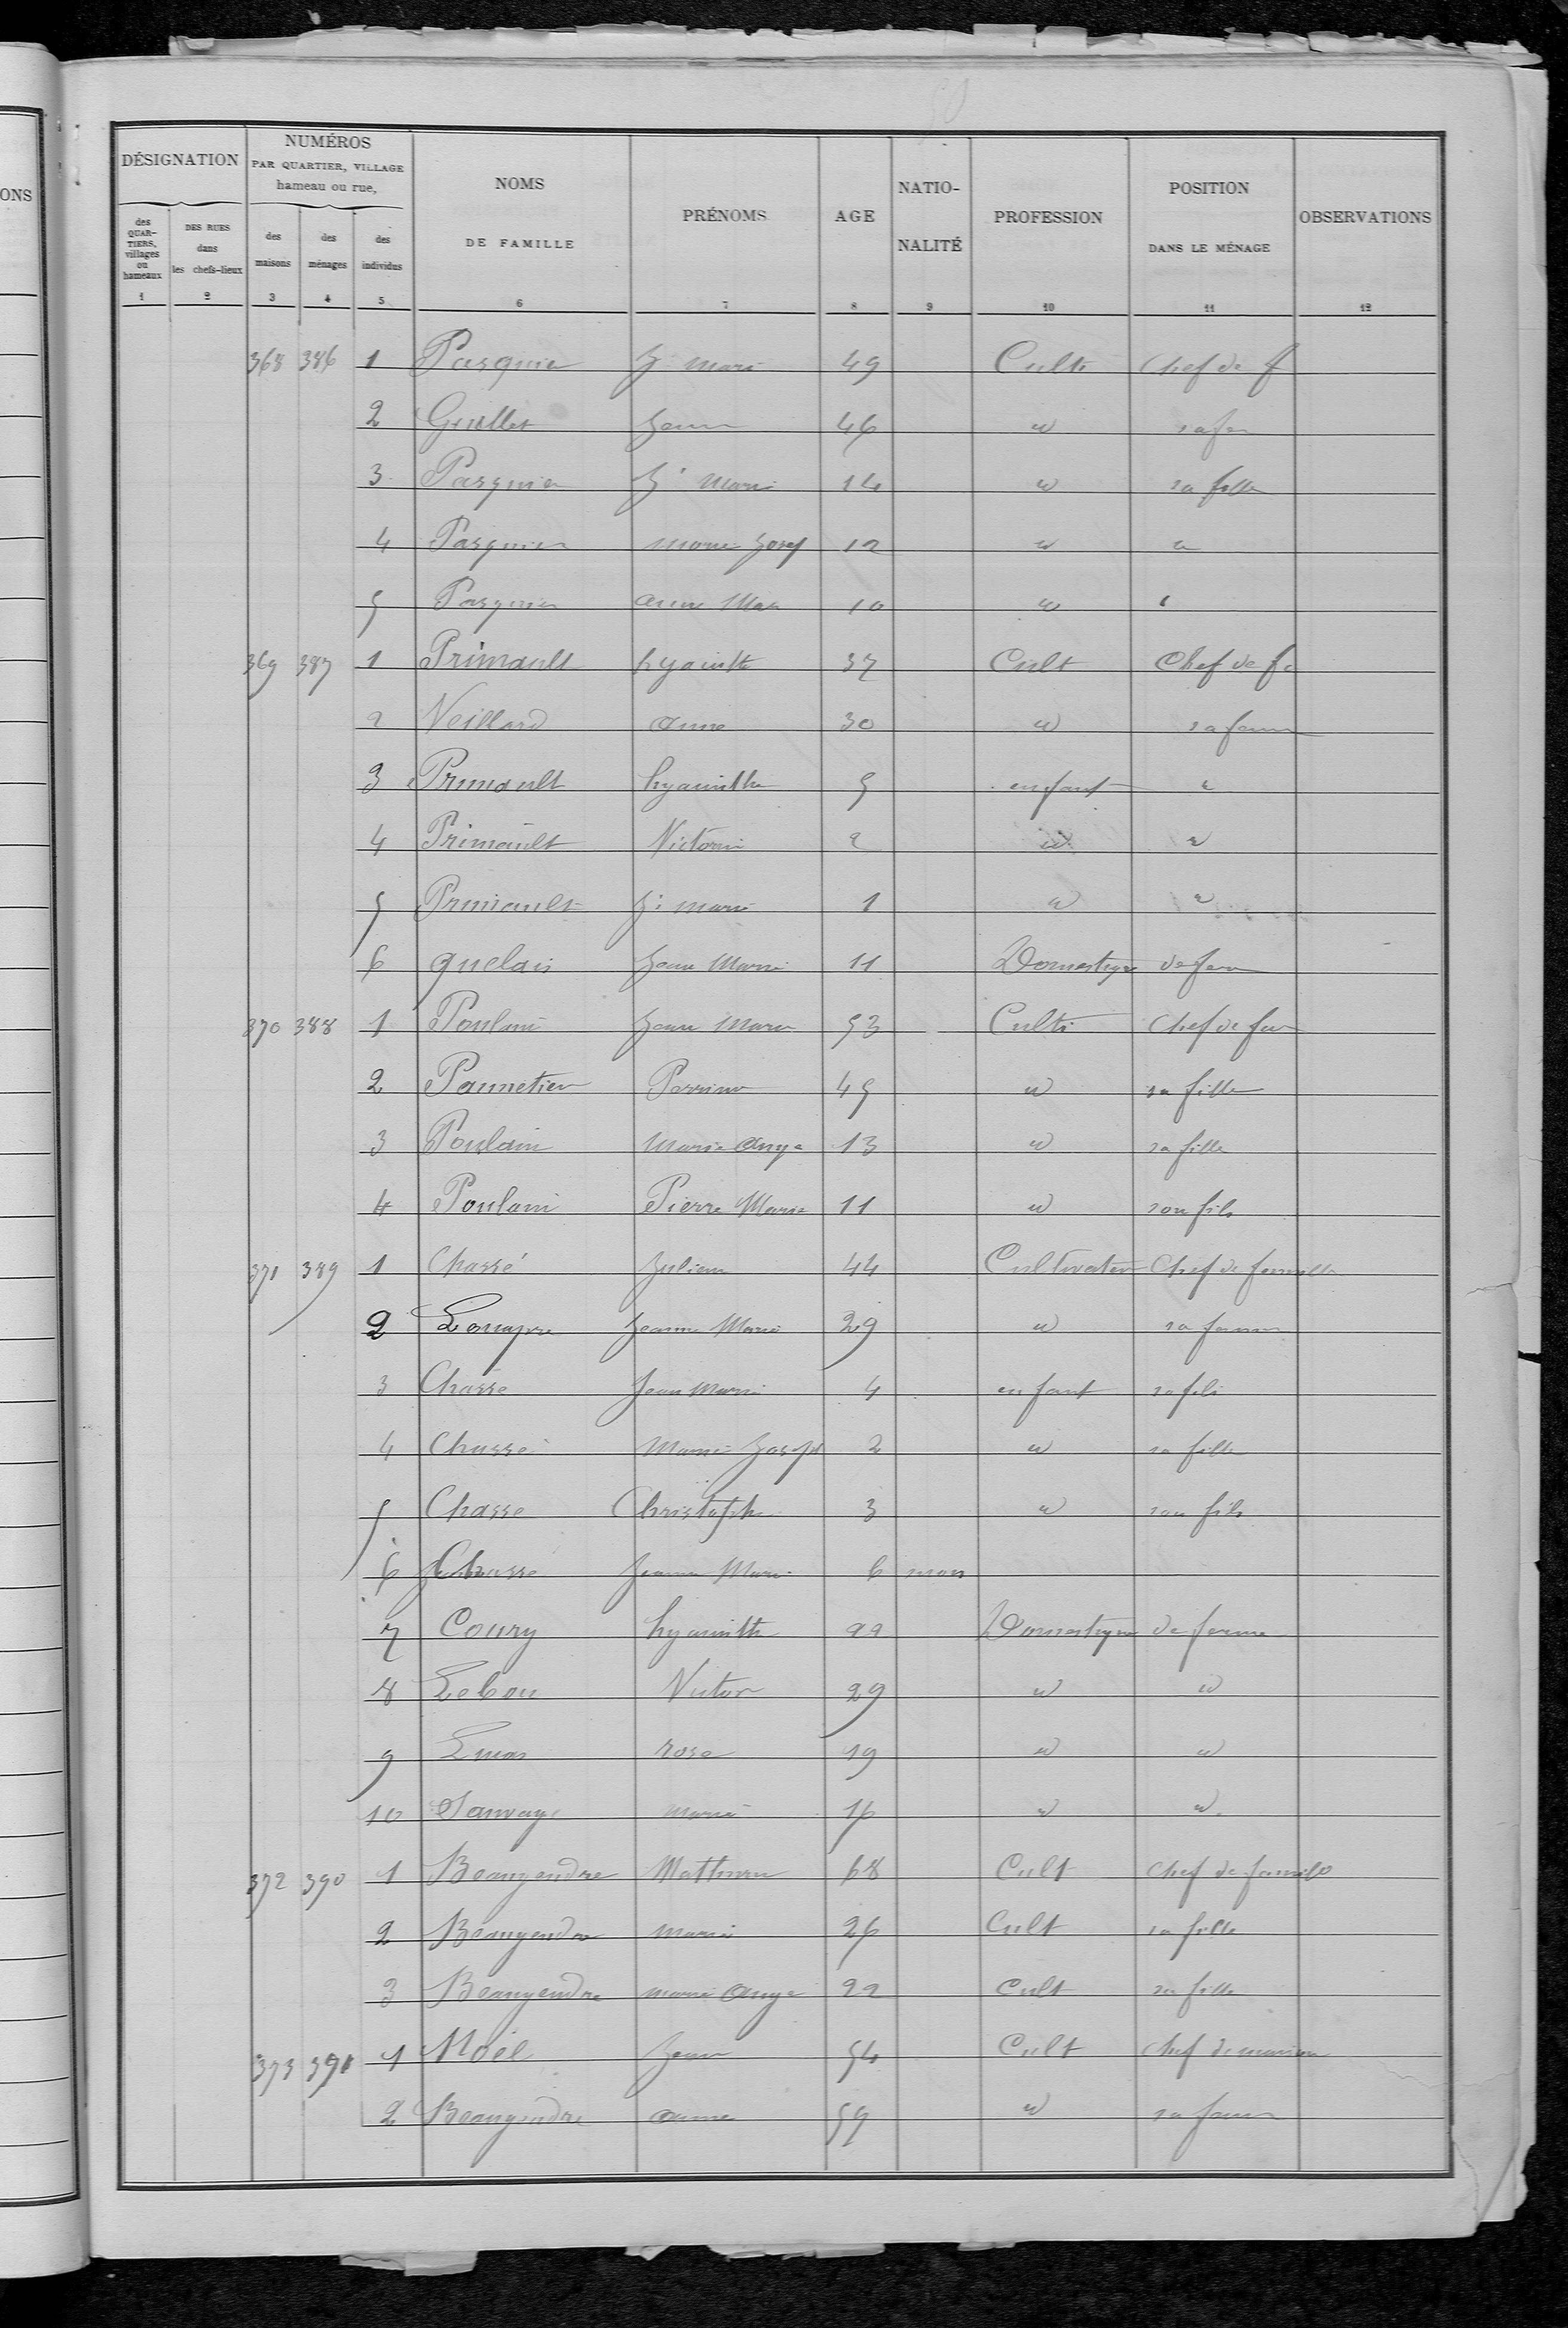 50
ONS
DÉSIGNATION
NUMÉROS
PAR QUARTIER, VILLAGE
hameau ou rue,
NOMS
DE FAMILLE
PRÉNOMS
AGE
NATIO-
NALITÉ
PROFESSION
POSITION
DANS LE MÉNAGE
OBSERVATIONS
des
QUAR-
TIERS,
villages
ou
hameaux
DES RUES
dans
les chefs-lieux
des
maisons
des
ménages
des
individus
1 2 3 4 5 6 7 8 9 10 11 12
368 386 1 Pasquier J marie 49 Cult Chef de f
2 Guillet Jeanne 46 id sa fe
3 Pasquier Je Marie 14 id sa fille
4 Pasquier marie Josep 12 id id
5 Pasquier anne Mar 10 id
369 387 1 Primault hyacinthe 37 Cult Chef de fe
2 Veillard anne 30 id sa femme
3 Primault hyacinthe 5 enfant id
4 Primault Victorin 2 id id
5 Primault Je marie 1 id id
6 quelais Jean Marie 11 Domestique de ferme
370 388 1 Poulain Jean Marie 53 Culti Chef de fam
2 Pannetier Perrine 45 id sa fille
3 Poulain marie ange 13 id sa fille
4 Poulain Pierre Marie 11 id son fils
371 389 1 Chassé Julien 44 Cultivateur Chef de famille
2 Louapre Jeanne Marie 29 id sa femme
3 Chasse Jean Marie 4 enfant so fils
4 Chassé Marie Joseph 2 id sa fille
5 Chasse Christophe 3 id son fils
6 Chasse Jeanne Marie 6 mois
7 Coury hyacinthe 22 Domestique de ferme
8 Lebon Victor 29 id id
9 rose 19 id id
10 Sauvage marie 16 id id
372 390 1 Beaugendre Mathurin 68 Cult chef de famille
2 Beaugendre marie 26 Cult sa fille
3 Beaugendre marie Ange 22 Cult sa fille
373 391 1 Noël Jean 54 Cult chef de maison
2 Beaugendre anne 59 id sa femme